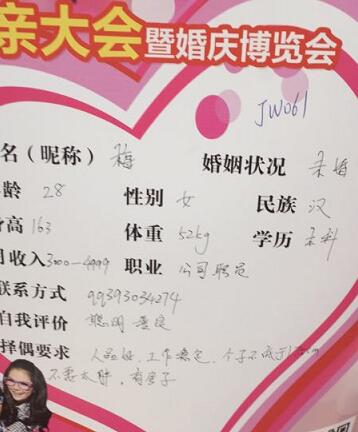 亲大会暨婚庆博览会
JW061
名（昵称） 梅 婚姻状况 未婚
年龄 28 性别 女 民族 汉
身高 163 体重 52kg 学历 本科
月收入 3000-4999 职业 公司职员
联系方式 qq393034274
自我评价 聪明善良
择偶要求 人品好，工作稳定，个子不低于
不要太胖，有房子